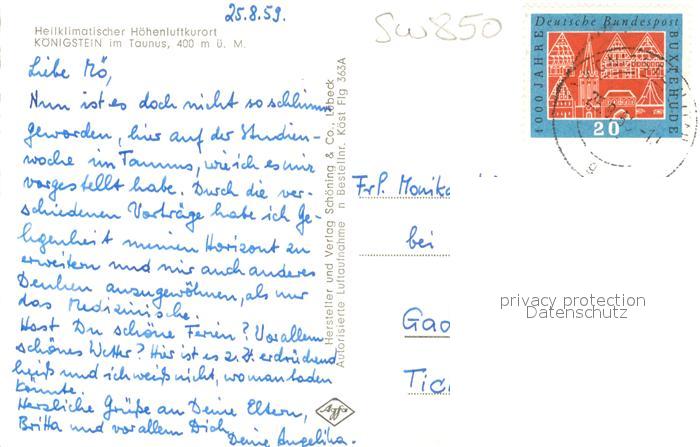 25.8.59.
SW850
Heilklimatischer Höhenluftkurort
KÖNIGSTEIN im Taunus, 400 m ü. M.
Liebe Mö,
Nun ist es doch nicht so schlimm
geworden, hier auf der Studien-
woche im Taunus, wie ich es mir
vorgestellt habe. Durch die ver-
schiedenen Vorträge habe ich Ge-
legenheit meinen Horizont zu
erweitern und mir auch anderes
Denken anzugewöhnen, als nur
das Medizinische.
Hast Du schöne Ferien? Vor allem
schönes Wetter? Hier ist es z. Zt. erdrückend
heiß und ich weiß nicht, wo man baden
könnte.
Herzliche Grüße an Deine Eltern,
Britta und vor allem Dich
Deine Angelika.
Hersteller und Verlag Schöning & Co., Lübeck
Autorisierte Luftaufnahme n Bestellnr. Köst Flg 363A
Agfa
Deutsche Bundespost
1000 JAHRE
BUXTEHUDE
20
Frl. Monika
bei
Gao
Tic
privacy protection
Datenschutz